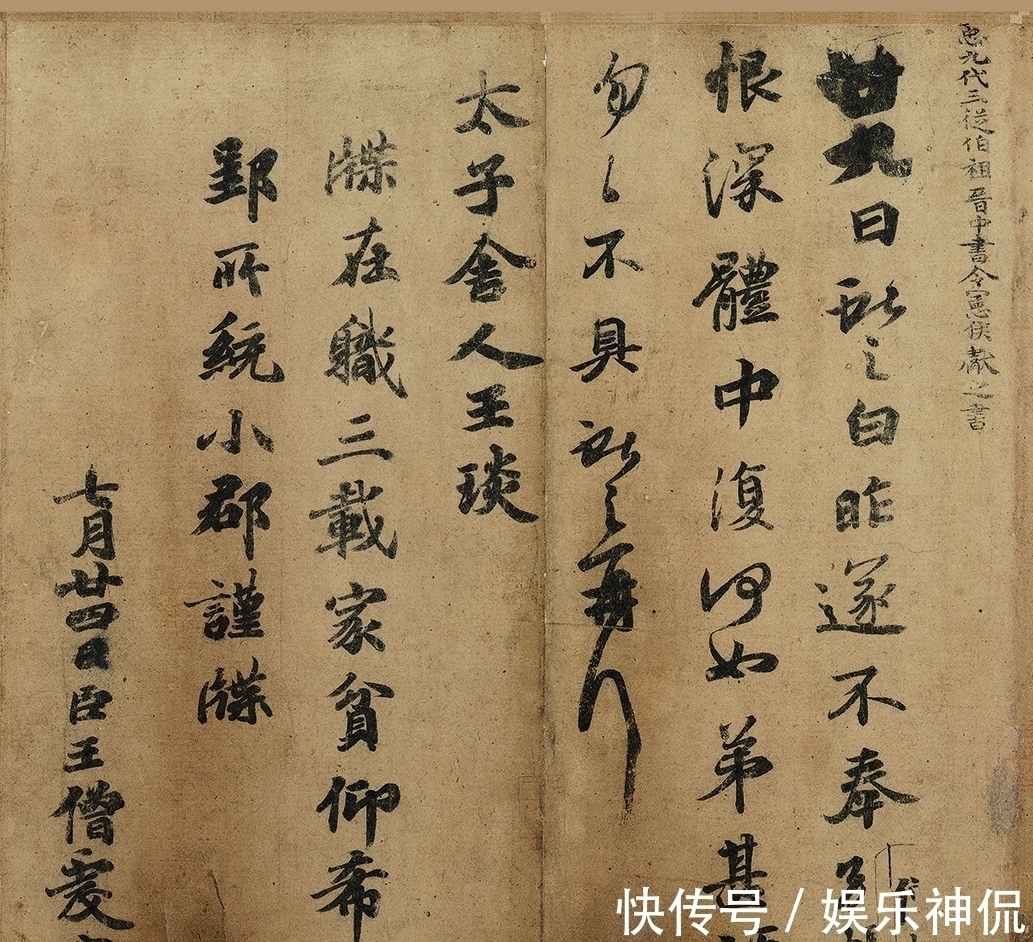 臣九代三從伯祖晉中書令憲侯獻之書
廿九日獻之白昨遂不奉
恨深體中復何如弟甚
勿々不具獻之再拜
太子舍人王琰
牒在職三載家貧仰希
郢所統小郡謹牒
七月廿四日臣王僧虔
快传号 / 娱乐神侃